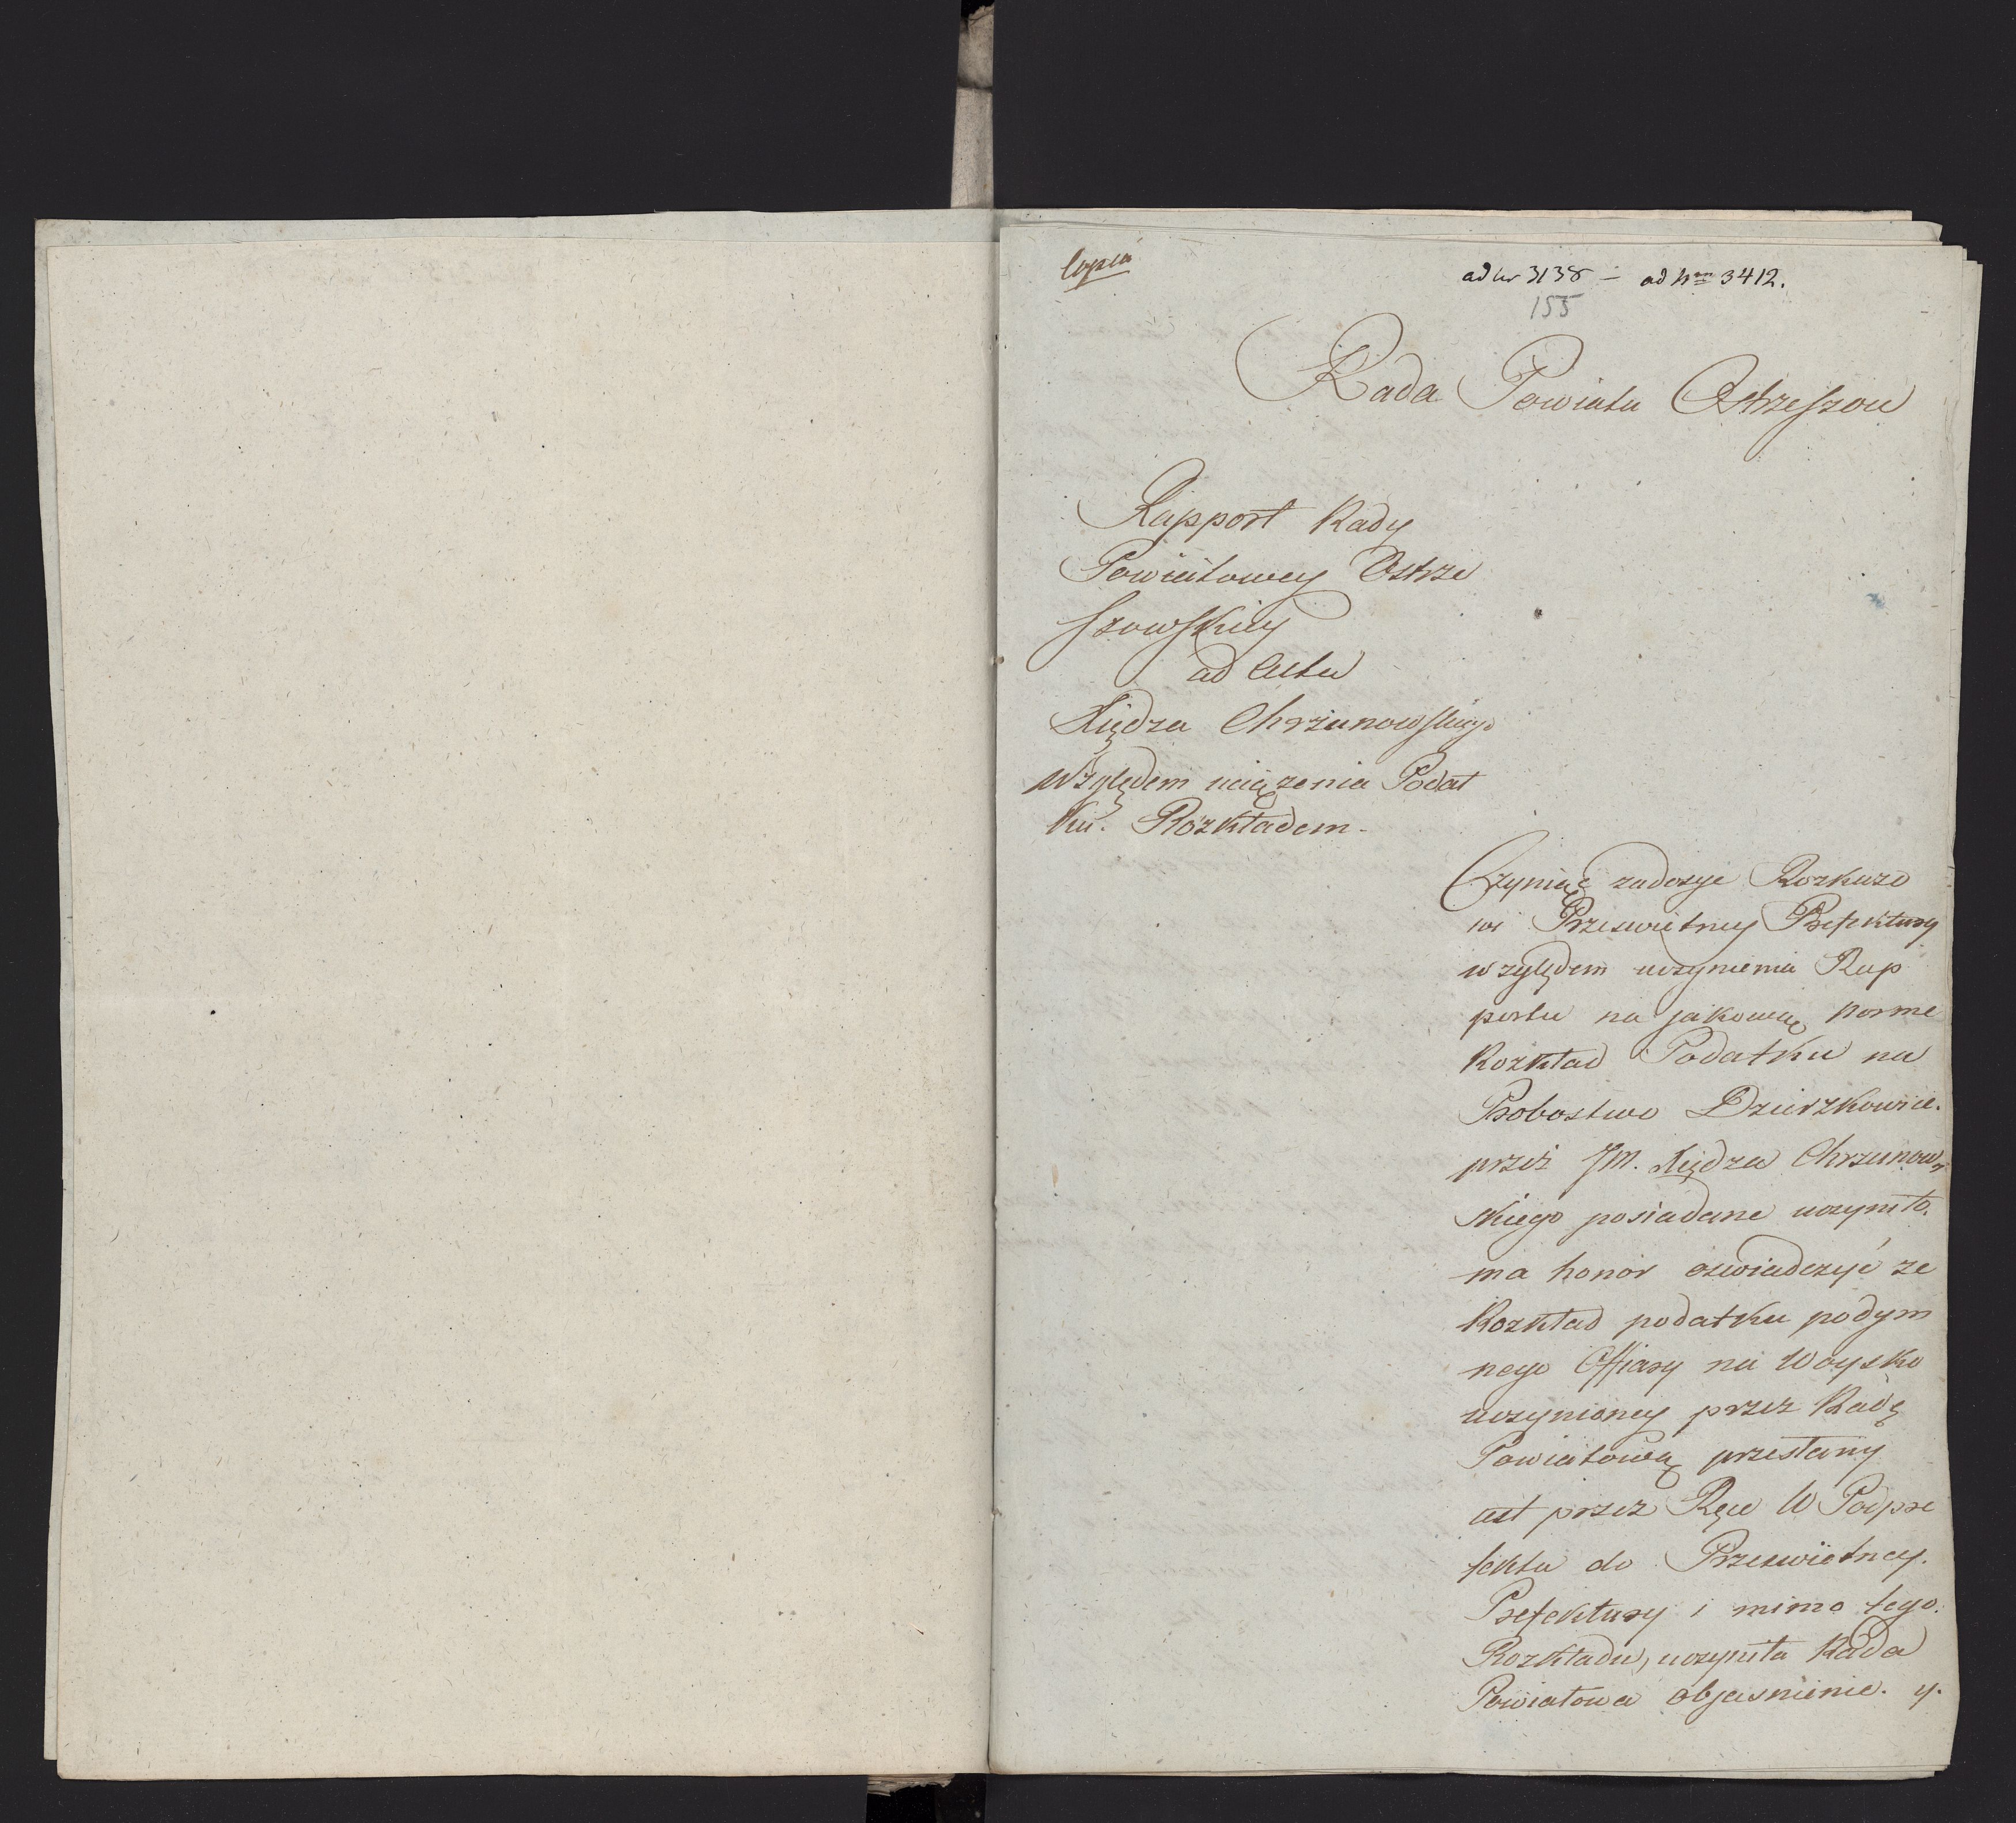 Copia
ad Nr 3138 — ad Nrm 3412.
155
Rada Powiatu Ostrzeszow
Rapport Rady
Powiatowey Ostrze
szowskiey
ad Acta
Xiędza Chrzanowskiego
względem uciązenia Podat
ku. Rozkładem.
Czyniąc zadosyc Rozkazo
wi Przeswietney Prefektury
względem uczynienia Rap
portu na jakową norme
Rozkład Podatku na
Probostwo Dzierzkowice.
przez JM. Xiędza Chrzanow
skiego posiadane uczyniła.
ma honor oswiadczyć ze
Rozkład podatku podym
nego Offiary na Woysko
uczynioney przez Radę
Powiatową przesłany
iest przez Ręce W Podpre
fekta do Przeswietney.
Prefektury i mimo tego.
Rozkładu, uczyniła Rada
Powiatowa objasnienie. y.